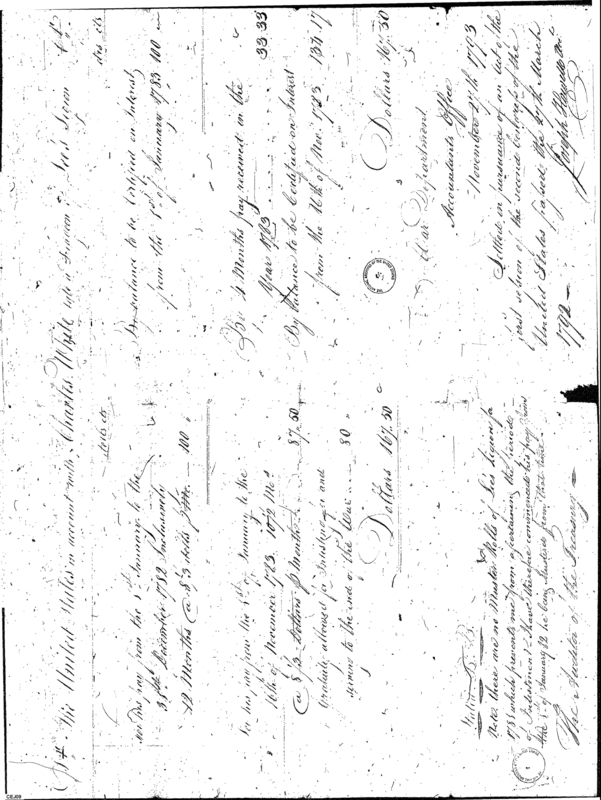 Dr. The United States in account with Charles White late a Dragoon Lee's Legion Cr.
dolls cts
For his pay from the 8th January to the
31st December 1782 Inclusively
12 Months @ 8 1/3 dolls pr M. 100
For his pay from the 1st of January to the
16th of November 1783 10 1/2 Mos
@ 8 1/3 Dollars p Month 87.50
Gratuity allowed for and
serving to the end of the War 80
Dollars 167.50
drs cts
By balance to be Certified on Interest
from the of January 1783 100
By 4 Months pay received in the
Year 1783 33.33
By balance to be Certified on Interest
from the 16th of Nov. 1783 134 17
Dollars 167.50
War Department
Accountants Office
November 27th 1793
Settled in pursuance of an Act of the
first session of the second Congress of the
United States passed the 27th March
1792 —
Joseph Howell
N. B.
Note there are no Muster Rolls of Lee's Legion for
178 which prevents me from ascertaining the periods
of Inlistment I have therefore commenced his pay from
the 8 of January 82 he being Mustered from that time
The Auditor of the Treasury
CEJ09